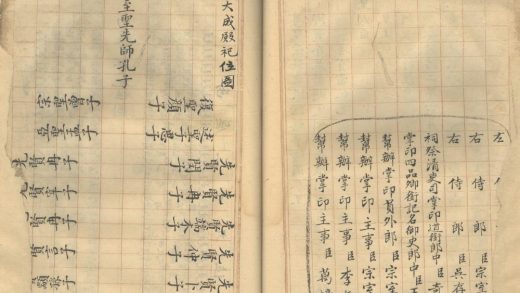 左
右侍郎臣吳存
右侍郎臣宗室
祠祭清吏司掌印道銜郎中臣奇
掌印四品卿銜記名御史郎中臣王
幫辦掌印員外郎臣宗室
幫辦掌印主事臣宗室
幫辦掌印主事臣李
幫辦掌印主事臣萬
大成殿祀位圖
至聖先師孔子
復聖顏子
述聖子思子
先賢閔子
先賢冉子
先賢端木子
先賢仲子
先賢卜子
宗聖曾子
亞聖孟子
先賢冉子
先賢宰子
先賢冉子